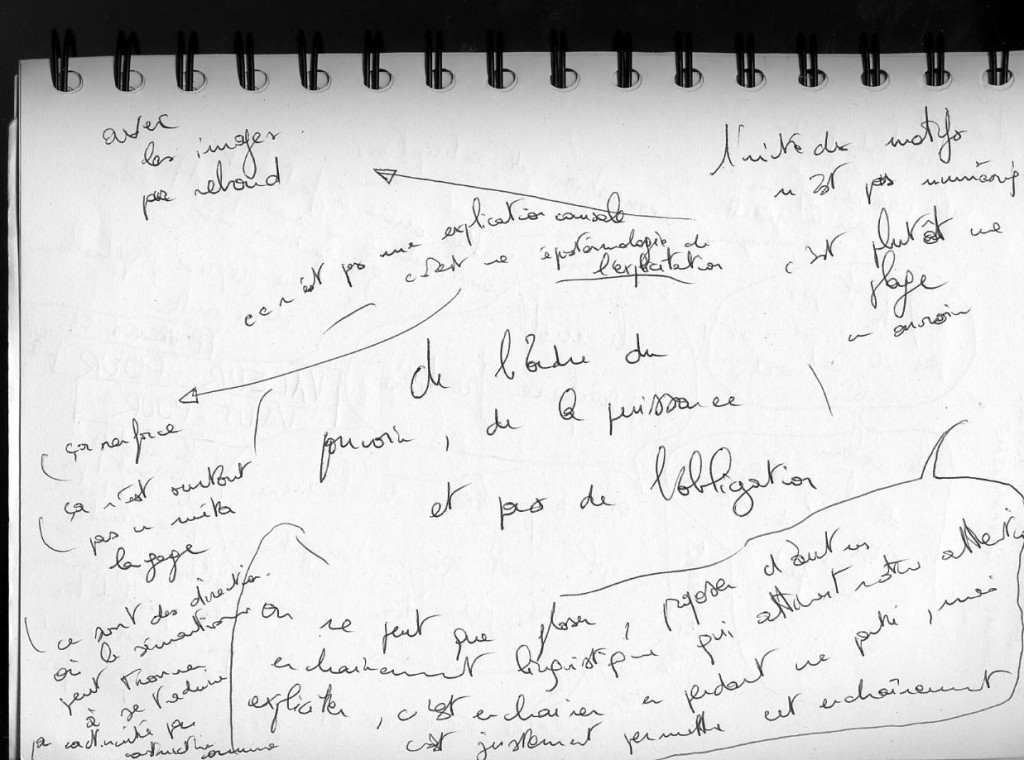 avec
les images
par rebond
l'unité du motifs
n'est pas numériq
c'est plutôt une
plage
un
ce n'est pas une explication causale
c'est une épistémologie de
l'explicitation
de l'ordre du
pouvoir, de la puissance
et pas de l'obligation
ça renforce
ça n'est surtout
pas un méta
langage
ce sont des direction
où le
peut
à se traduire
par
commune
On ne peut que gloser, proposer d'autres
enchainement linguistique qui attirent notre attentio
expliciter, c'est enchainer en perdant une partie, mais
c'est justement permettre cet enchaînement